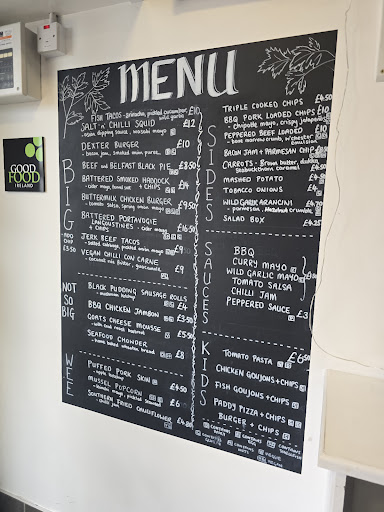 GOOD
FOOD
IRELAND
MENU
BIG
ADD CHIP £3.50
FISH TACOS - sriracha, pickled cucumber, £10
SALT n' CHILLI SQUID £12
- asian dipping sauce, wasabi mayo
DEXTER BURGER £10
- bacon jam, smoked onion puree
BEEF and BELFAST BLACK PIE £8.50
BATTERED SMOKED HADDOCK
- cider mayo, fennel salt + CHIPS £14
BUTTERMILK CHICKEN BURGER £9.50
- tomato salsa, spring onion mayo
BATTERED PORTAVOGIE
LANGOUSTINES - cider mayo £16.50
+ CHIPS
JERK BEEF TACOS £9
- salted cabbage, pickled onion mayo
VEGAN CHILLI CON CARNE
- coconut rice £9
NOT SO BIG
BLACK PUDDING SAUSAGE ROLLS
- mushroom ketchup £4
BBQ CHICKEN JAMBON £3.50
GOATS CHEESE MOUSSE
£5.50
SEAFOOD CHOWDER
- home baked wheaten bread £8
WEE
PUFFED PORK SKIN £4.50
- apple ketchup
MUSSEL POPCORN £6
- tomato mayo, pickled seaweed
SOUTHERN FRIED CAULIFLOWER £4
SIDES
TRIPLE COOKED CHIPS £4.50
BBQ PORK LOADED CHIPS £10
- chipotle mayo, crispy jalapeño
PEPPERED BEEF LOADED £10
BACON JAM + PARMESAN CHIPS
CARROTS - Brown butter, dukka, £4
MASHED POTATO £4
TOBACCO ONIONS £4
WILD GARLIC ARANCINI £4.70
- parmesan, hazelnut crumble
SALAD BOX £4.25
SAUCES
BBQ
CURRY MAYO
WILD GARLIC MAYO
TOMATO SALSA
CHILLI JAM
PEPPERED SAUCE £3
KIDS
TOMATO PASTA £6.50
CHICKEN GOUJONS + CHIPS
FISH GOUJONS + CHIPS
PADDY PIZZA + CHIPS
BURGER + CHIPS
CONTAINS
VEGGIE
VEGAN